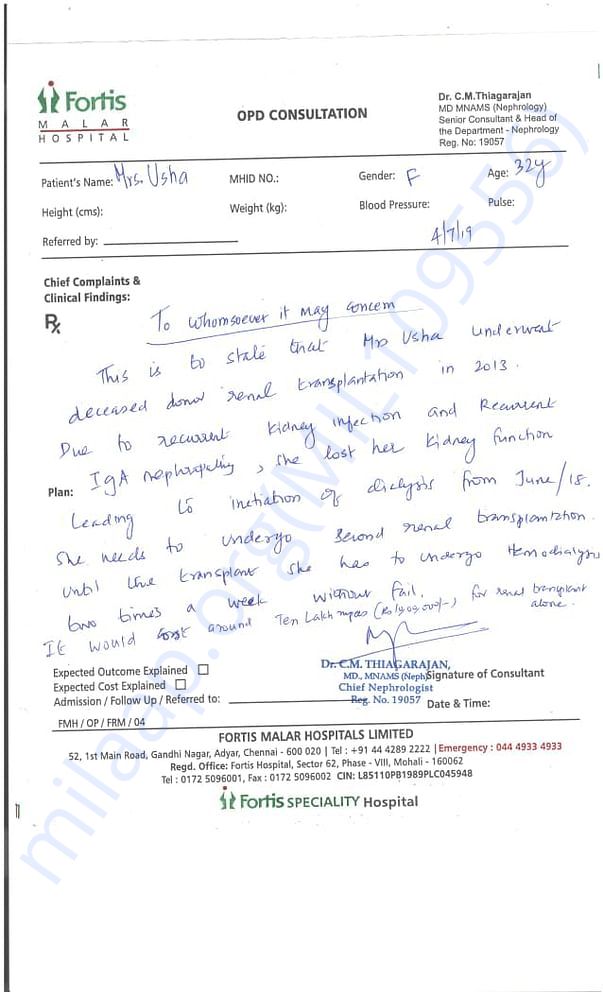 Fortis
MALAR
HOSPITAL
OPD CONSULTATION
Dr. C.M.Thiagarajan
MD MNAMS (Nephrology)
Senior Consultant & Head of
the Department - Nephrology
Reg. No: 19057
Patient's Name: Mrs. Usha MHID NO.: Gender: F Age: 32y
Height (cms): Weight (kg): Blood Pressure: Pulse:
Referred by: 4/7/19
Chief Complaints &
Clinical Findings:
Rx
To whomsoever it may concern
This is to state that Mrs Usha underwent
deceased donor renal transplantation in 2013.
Due to recurrent kidney infection and Recurrent
IgA nephropathy, she lost her kidney function
Plan:
Leading to initiation of dialysis from June/18.
She needs to undergo second renal transplantation.
until the transplant she has to undergo Hemodialysis
two times a week without fail.
It would cost around Ten Lakh rupees for renal transplant
alone.
Expected Outcome Explained
Expected Cost Explained
Admission / Follow Up / Referred to:
Dr. C.M. THIAGARAJAN,
MD., MNAMS (Neph)
Chief Nephrologist
Reg. No. 19057
Signature of Consultant
Date & Time:
FMH / OP / FRM / 04
FORTIS MALAR HOSPITALS LIMITED
52, 1st Main Road, Gandhi Nagar, Adyar, Chennai - 600 020 | Tel : +91 44 4289 2222 | Emergency : 044 4933 4933
Regd. Office: Fortis Hospital, Sector 62, Phase - VIII, Mohali - 160062
Tel : 0172 5096001, Fax : 0172 5096002 CIN: L85110PB1989PLC045948
Fortis SPECIALITY Hospital
milaap.org(MIL109556)